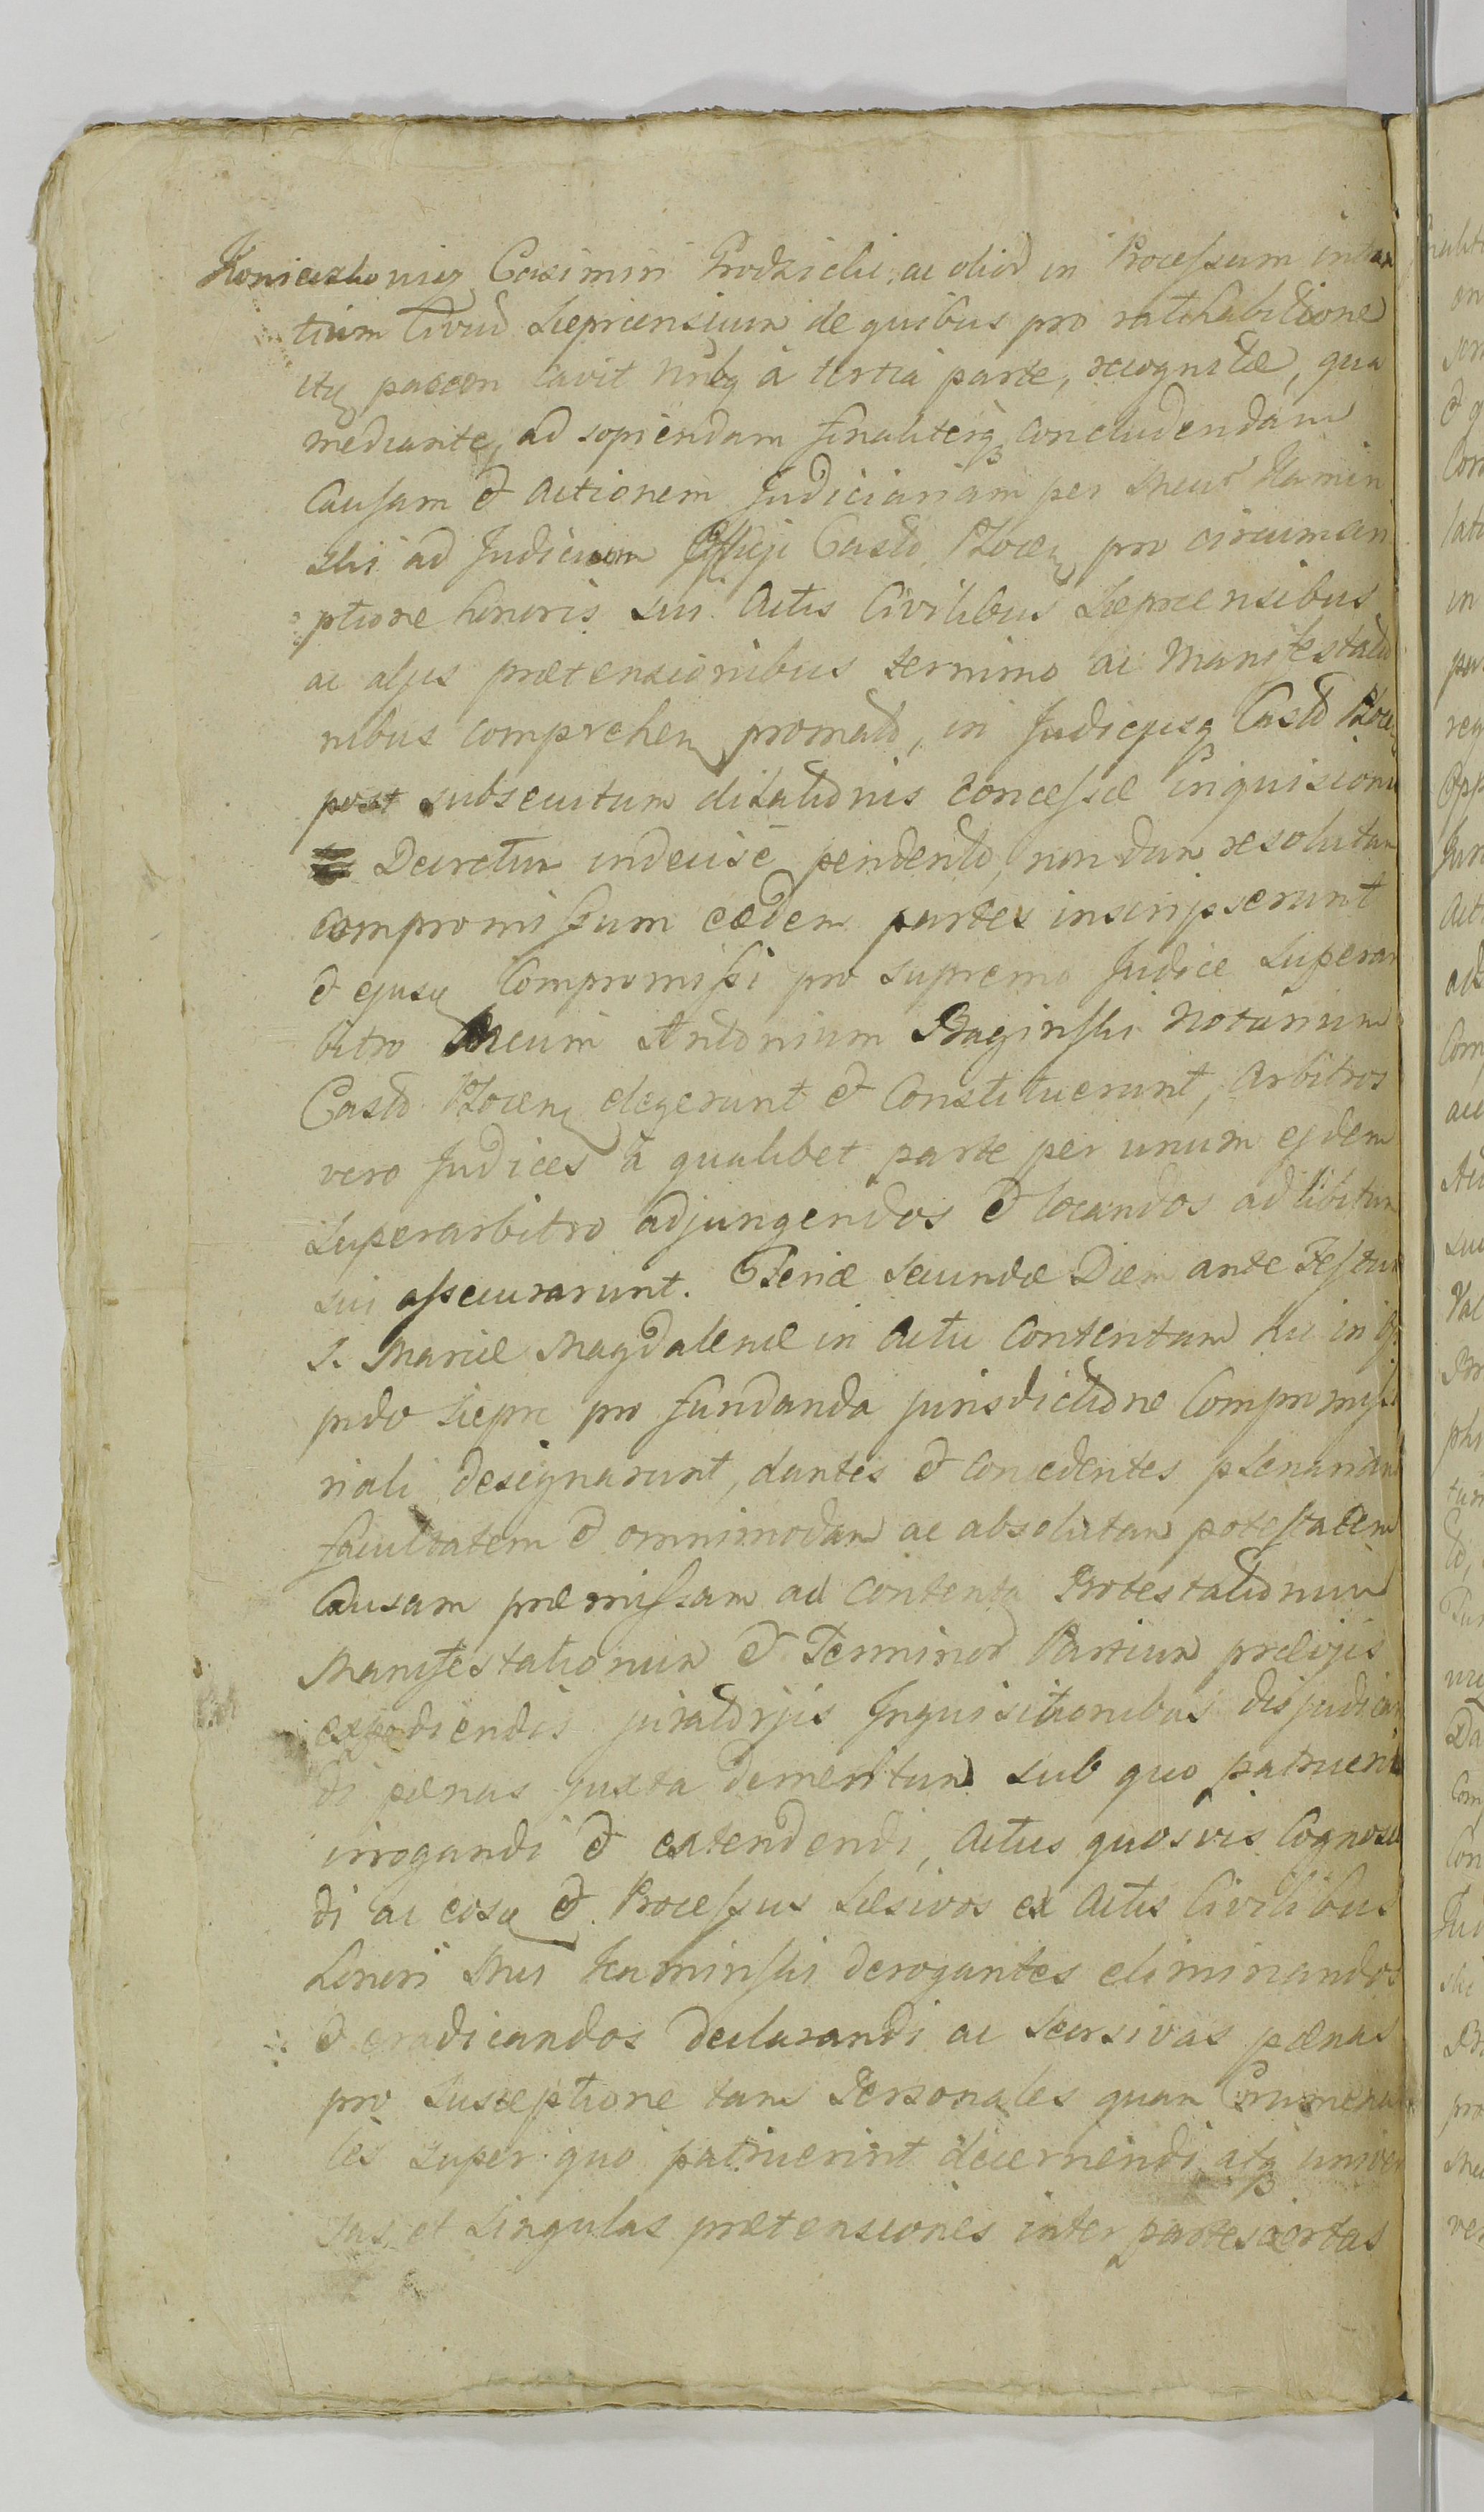 Casimiri Grodzicki ac aliod in Processum intran
tium Civiu Siepricensium de quibus pro ratihabitione
à tertia parte, recognitæ, qua
mediante, ad sopiendam finaliterq concludendam
Causam & Actionem Judiciariam per Kamin
ski ad Judicium Officji Castr Plocen pro circumscri
ptione honoris sui Actis Civilibus Sieprcensibus
ac alijs prætensionibus termino ac Manifestatio
nibus comprehen promoto, in Judicijsq Castr Plocen
post subsecutum dilationis concessæ inquisitionis
Decretum indecise pendente, nondum resolutam
compromissum eædem partes inscripserunt
& ejusq Compromissi pro supremo Judice Superar
bitro Antonium Baginski Notarium
Castr Plocen elegerunt & Constituerunt, Arbitros
vero Judices à qualibet parte per unum ejdem
Superarbitro adjungendos & locandos ad libitum
sui assecurarunt. Feriæ Secundæ Diem ante Festum
S. Mariæ Magdalenæ in Actu Contentam hic in Op
pido Siepre pro fundanda jurisdictione Compromisso
riali designarunt, dantes & concedentes plenariam
facultatem & omnimodam ac absolutam potestatem
Causam præmissam ad contenta Protestationum
Manifestationum & Terminor Partium prævijs
expediendis juratorijs Inquisitionibus disjudican
di pænas juxta demeritum sub quo patruerit
irrogandi & extendendi, Actus quosvis Cognoscen
di ac eosq & Processus Læsivos ex Actis Civilibus
honori Kaminski derogantes eliminandos
& eradicandos declarandi ac pænas
pro susceptione tam Personales quam Crumena
les super quo patruerint decernendi atq univer
sas et singulas prætensiones inter partes certas